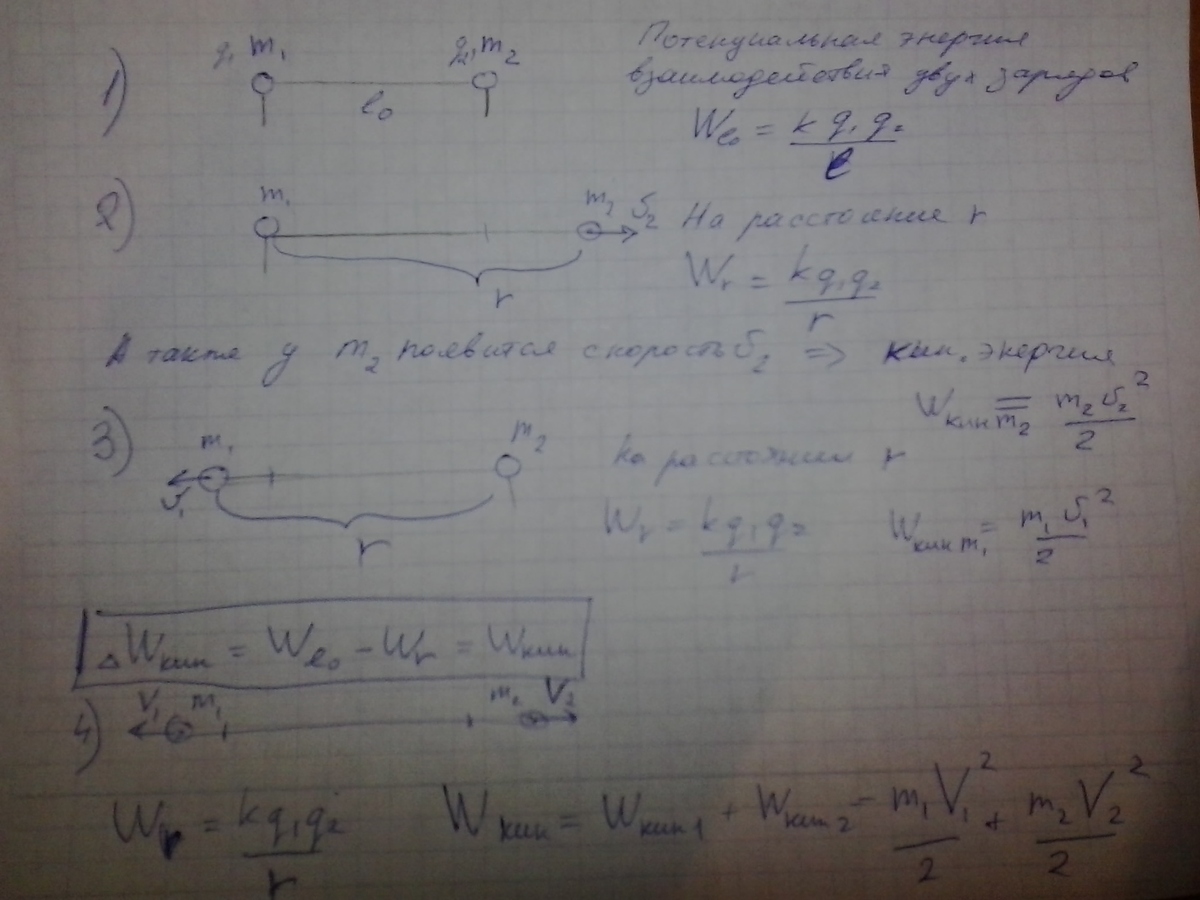 1) q₁ m₁ q₂, m₂
l₀
Потенциальная энергия
взаимодействия двух зарядов
W_l₀ = k q₁ q₂ / l
2) m₁ m₂ υ₂ На расстояние r
r
W_r = k q₁ q₂ / r
А такте у m₂ появится скорость υ₂ => кин. энергия
W_кин m₂ = m₂ υ₂² / 2
3) m₁ m₂
υ₁
r
на расстоянии r
W_r = k q₁ q₂ / r W_кин m₁ = m₁ υ₁² / 2
ΔW_кин = W_l₀ - W_r = W_кин
4) V₁ m₁ m₂ V₂
W_r = k q₁ q₂ / r W_кин = W_кин 1 + W_кин 2 = m₁ V₁² / 2 + m₂ V₂² / 2